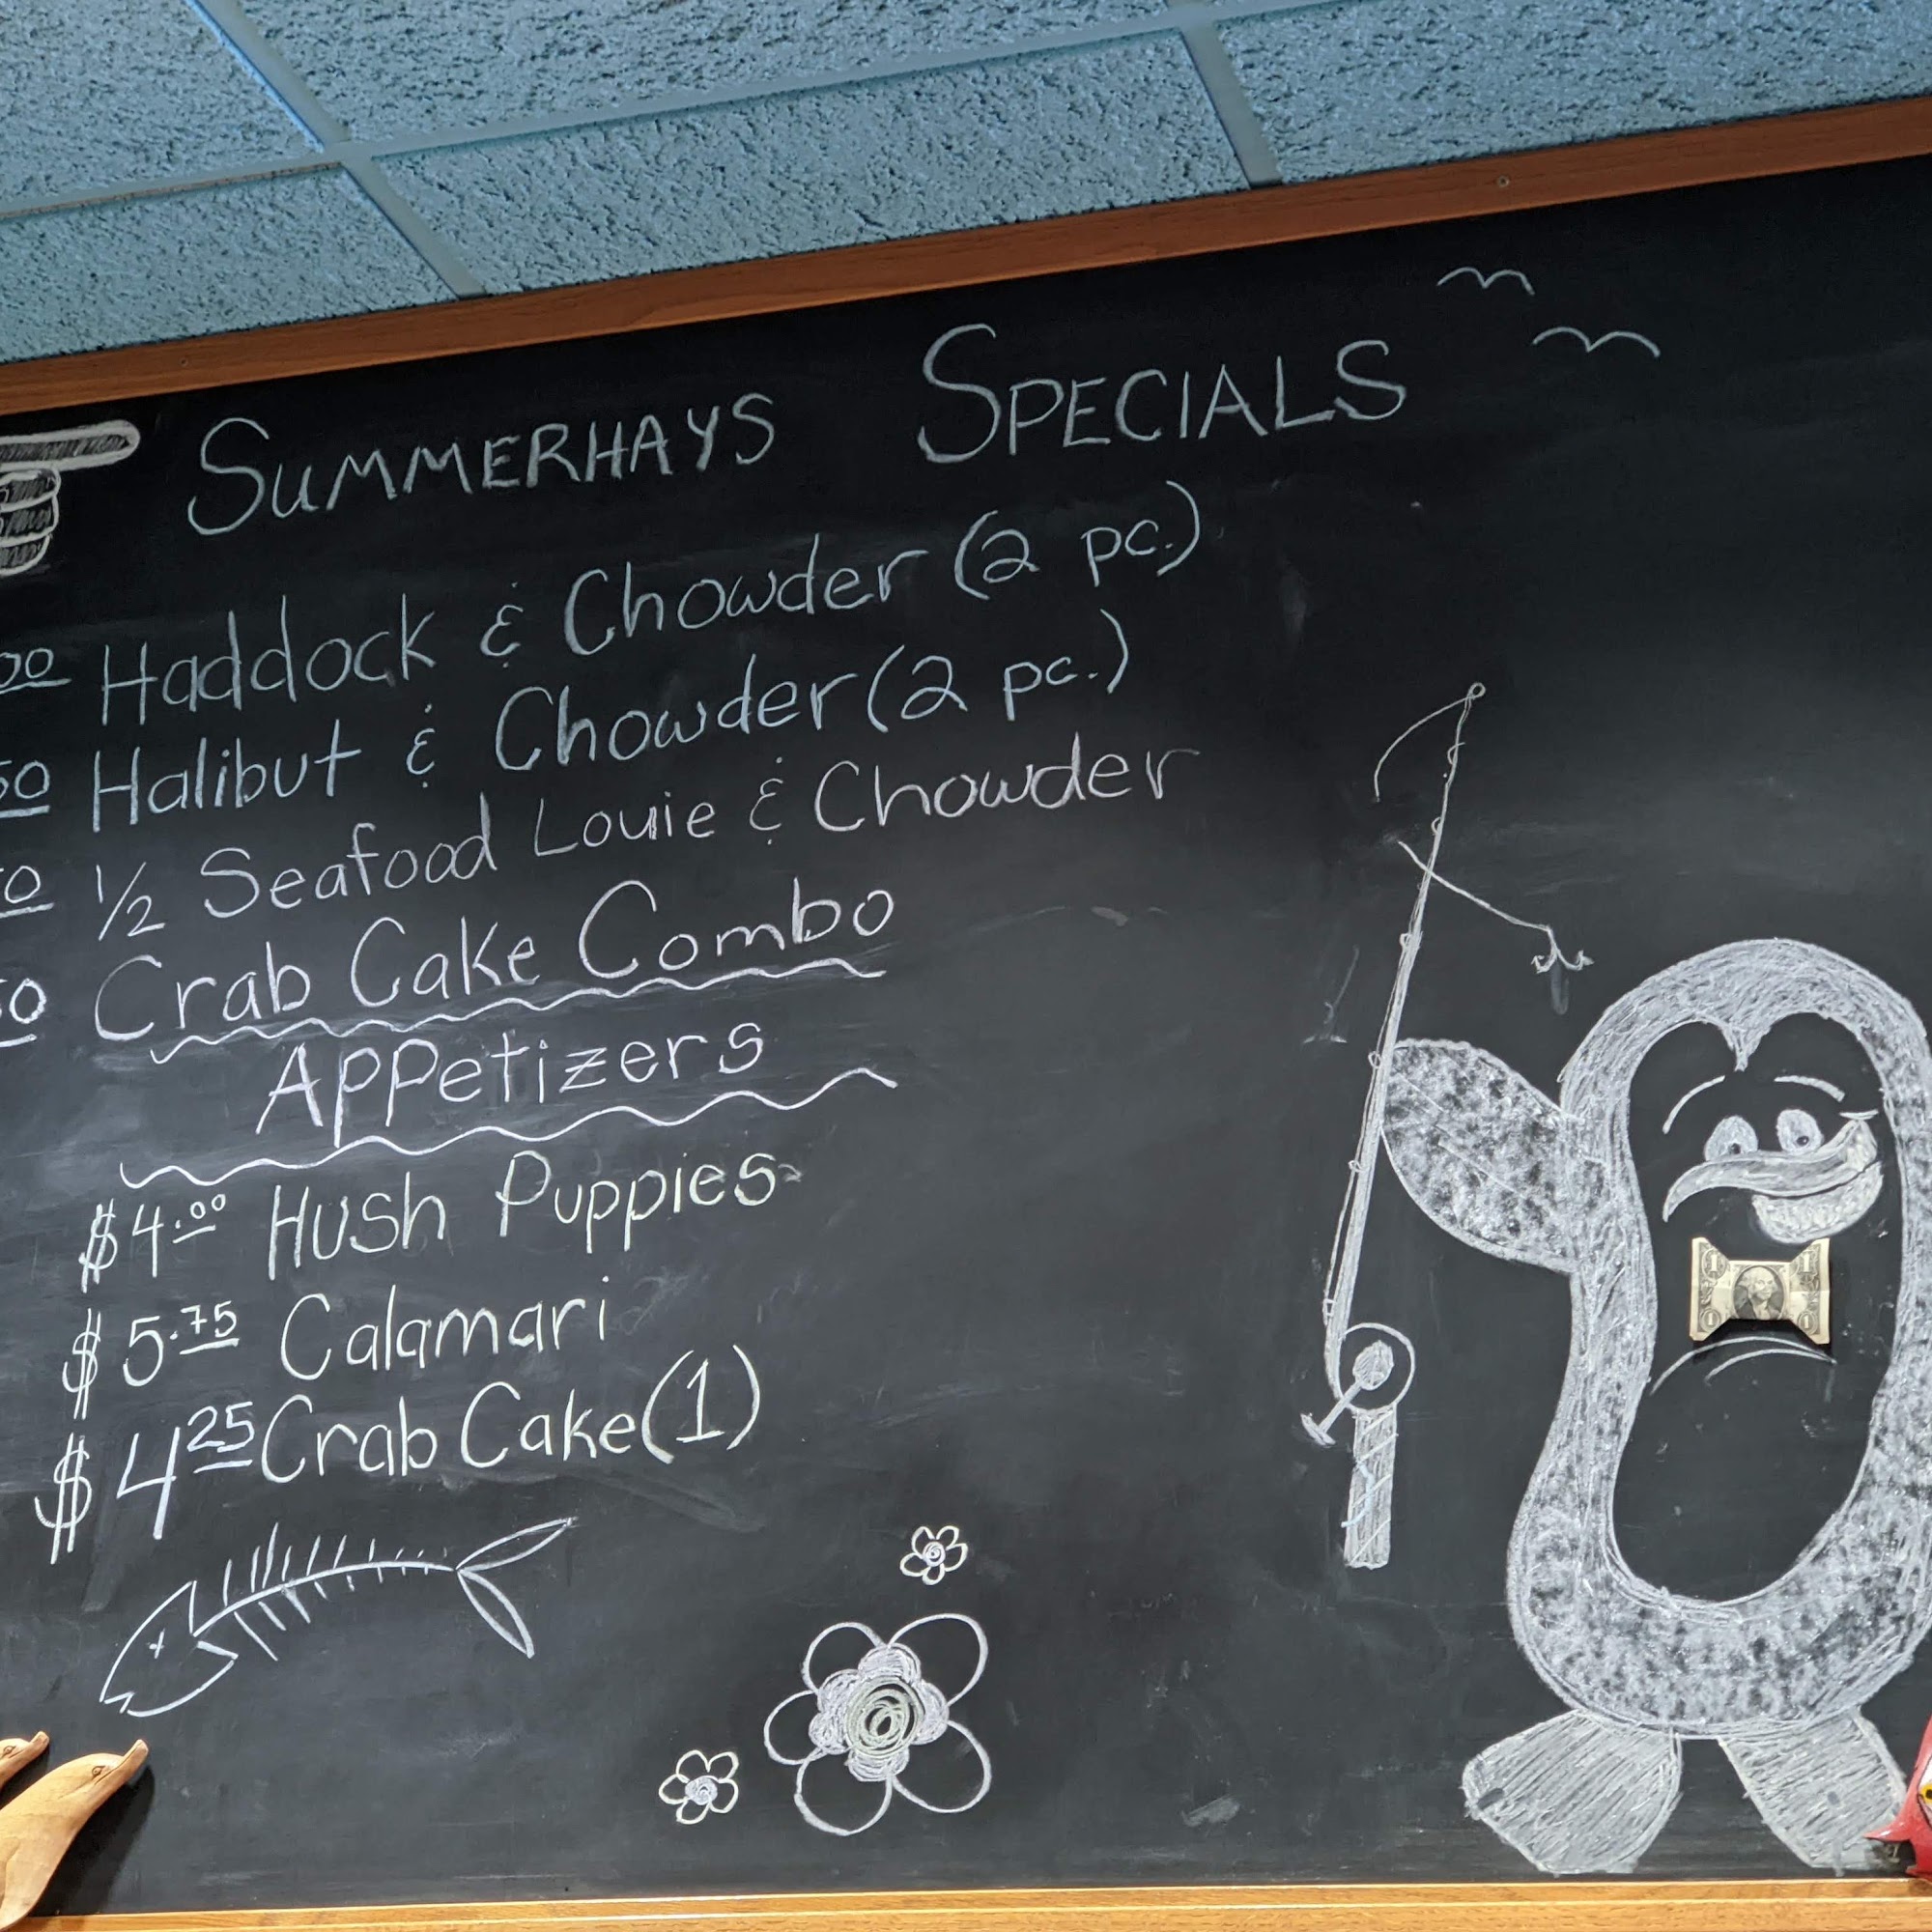 SUMMERHAYS SPECIALS
00 Haddock & Chowder (2 pc.)
50 Halibut & Chowder (2 pc.)
0 1/2 Seafood Louie & Chowder
50 Crab Cake Combo
Appetizers
$4.00 Hush Puppies
$5.75 Calamari
$4 25 Crab Cake (1)
1 1
1 1